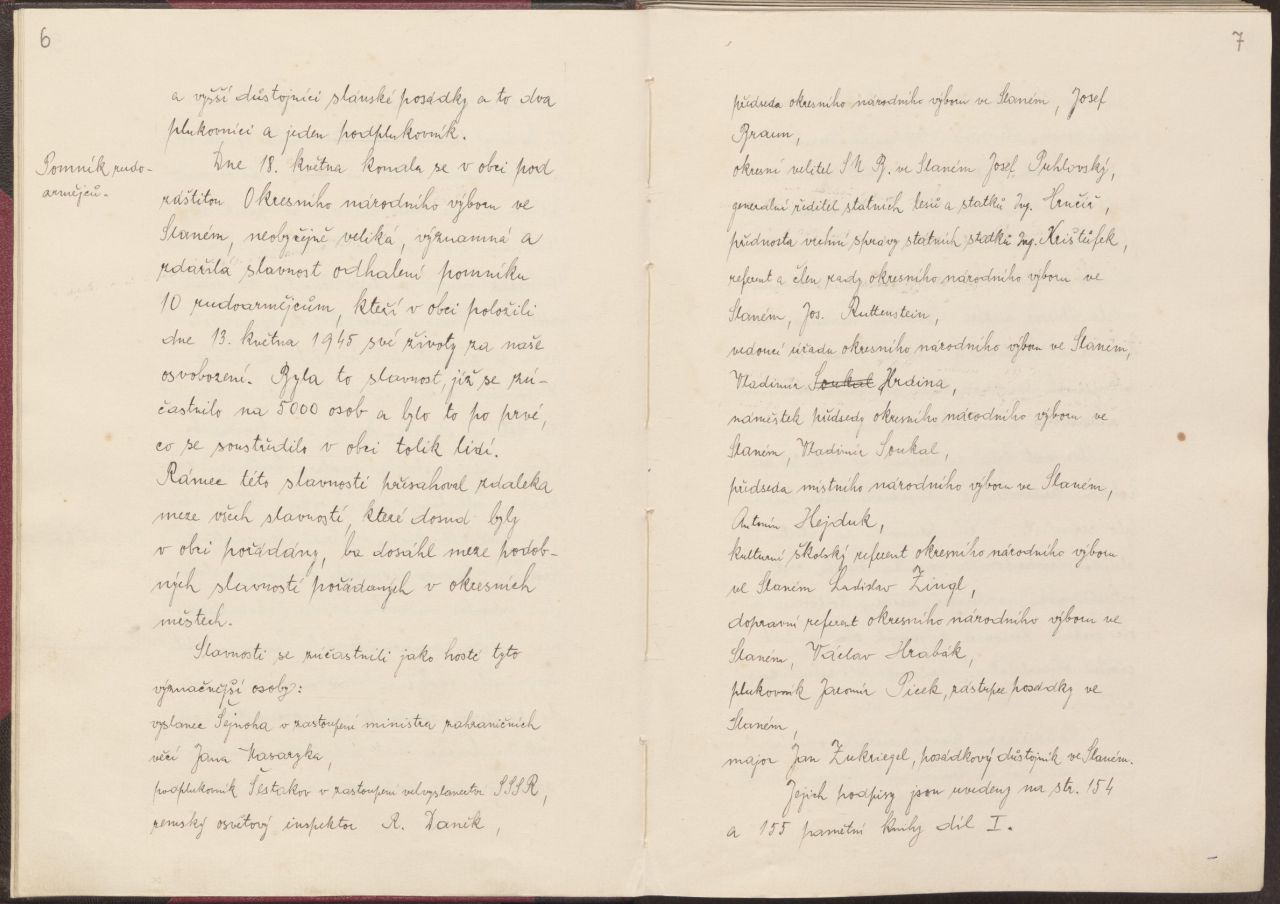 6
a vyšší důstojníci slánské posádky a to dva
plukovníci a jeden podplukovník.
Pomník rudo-
armějců.
Dne 18. května konala se v obci pod
záštitou Okresního národního výboru ve
Slaném, neobyčejně veliká, významná a
zdařilá slavnost odhalení pomníku
10 rudoarmějcům, kteří v obci položili
dne 13. května 1945 své životy za naše
osvobození. Byla to slavnost, jíž se zú-
častnilo na 5000 osob a bylo to po prvé,
co se soustředilo v obci tolik lidí.
Rámec této slavnosti přesahoval zdaleka
meze všech slavností, které dosud byly
v obci pořádány, ba dosáhl meze podob-
ných slavností pořádaných v okresních
městech.
Slavnosti se zúčastnili jako hosté tyto
význačnější osoby:
vyslanec Šejnoha v zastoupení ministra zahraničních
věcí Jana Masaryka,
podplukovník Šestakov v zastoupení velvyslanectva SSSR,
zemský osvětový inspektor R. Daněk,
7
předseda okresního národního výboru ve Slaném, Josef
Braun,
okresní velitel SNB. ve Slaném Josef Puhlovský,
generální ředitel státních lesů a statků Ing. Hrnčíř,
přednosta vrchní správy státních statků Ing. Krištůfek,
referent a člen rady okresního národního výboru ve
Slaném, Jos. Ruttenstein,
vedoucí úřadu okresního národního výboru ve Slaném,
Vladimír Soukal Hrdina,
náměstek předsedy okresního národního výboru ve
Slaném, Vladimír Soukal,
předseda místního národního výboru ve Slaném,
Antonín Hejduk,
kulturní školský referent okresního národního výboru
ve Slaném Ladislav Zingl,
dopravní referent okresního národního výboru ve
Slaném, Václav Hrabák,
plukovník Jaromír Picek, zástupce posádky ve
Slaném,
major Jan Zukriegel, posádkový důstojník ve Slaném.
Jejich podpisy jsou uvedeny na str. 154
a 155 pamětní knihy díl I.